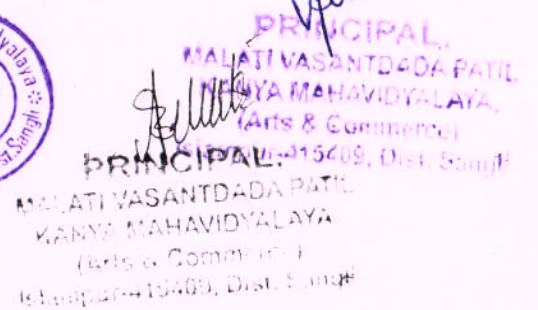 PRINCIPAL,
MALATI VASANTDADA PATIL
KANYA MAHAVIDYALAYA,
(Arts & Commerce)
Islampur-415409, Dist. Sangli
PRINCIPAL,
MALATI VASANTDADA PATIL
KANYA MAHAVIDYALAYA
(Arts & Commerce)
Islampur-415409, Dist. Sangli
Dist.Sangli